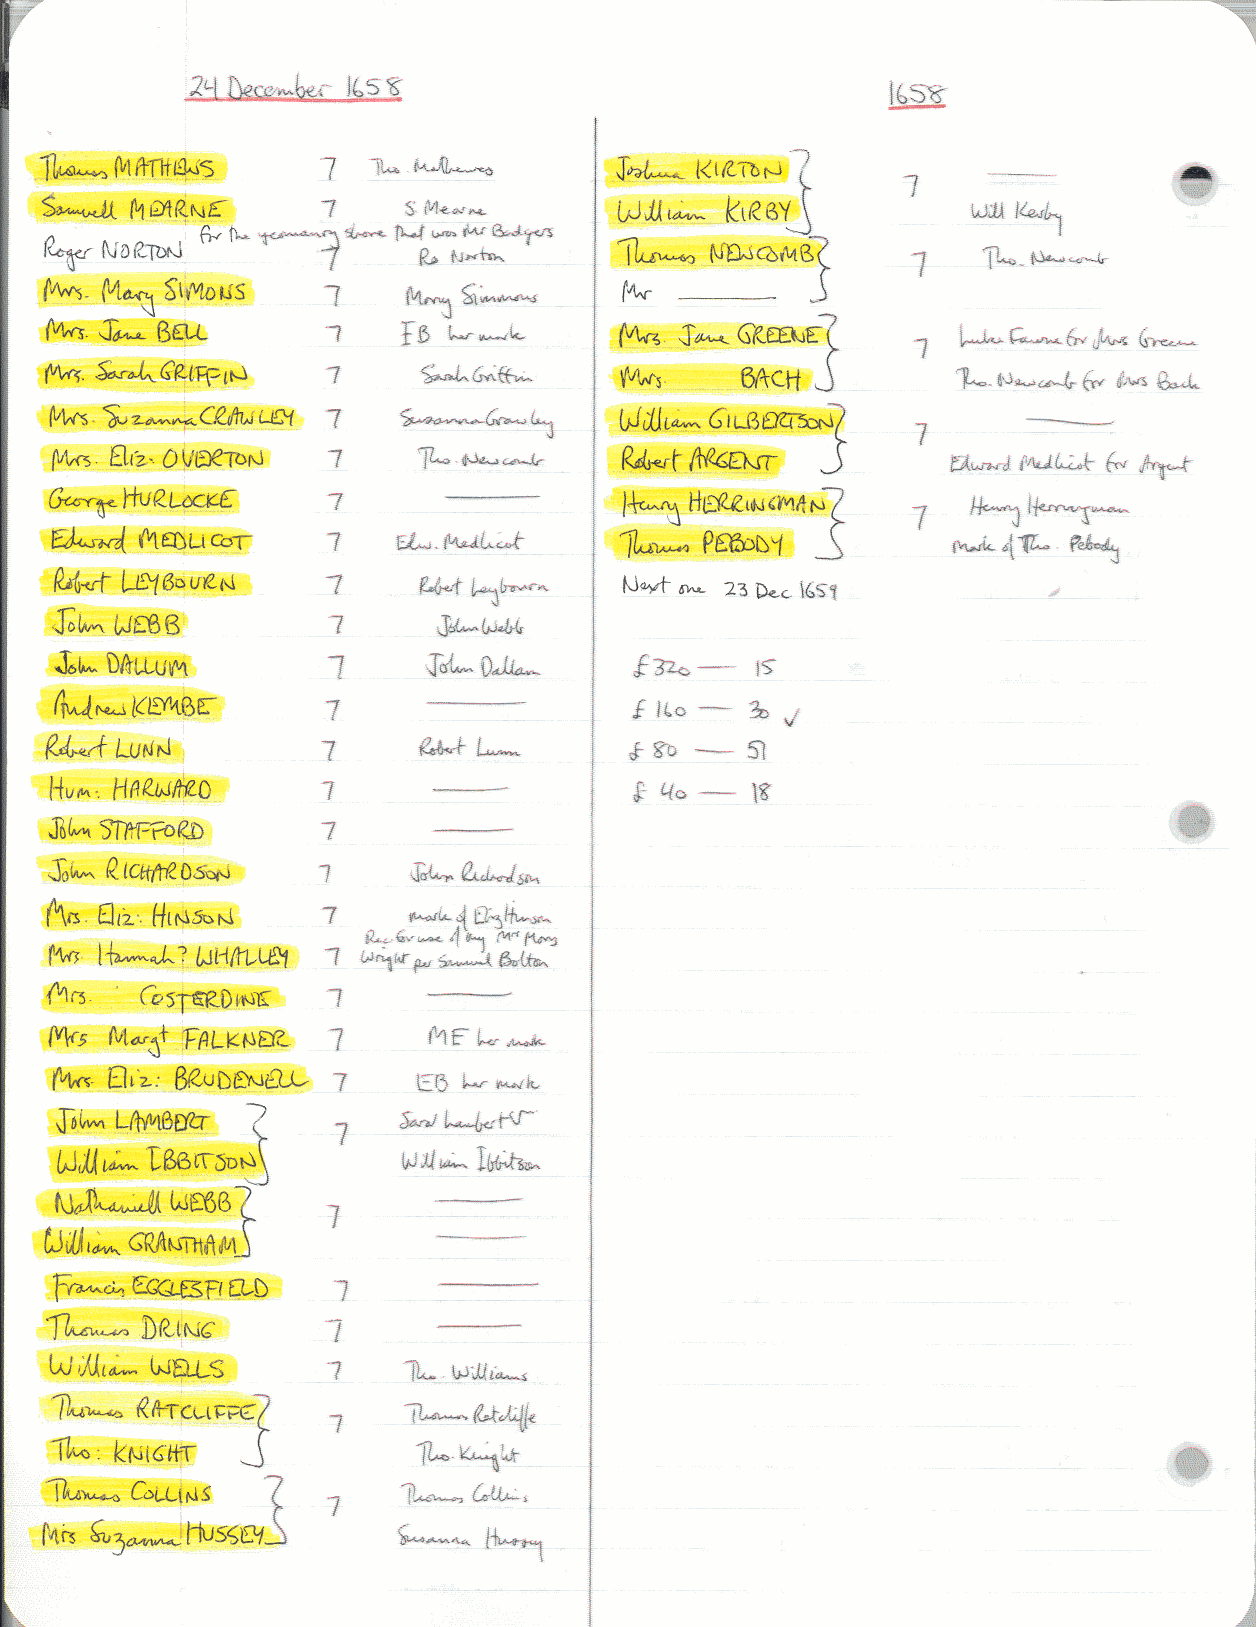 24 December 1658
Thomas MATHEWS 7 Tho. Mathewes
Samuell MEARNE 7 S Mearne
for the yeomanry share that was Mr Badgers
Roger NORTON 7 Ro Norton
Mrs. Mary SIMONS 7 Mary Simmons
Mrs. Jane BELL 7 IB her mark
Mrs. Sarah GRIFFIN 7 Sarah Griffin
Mrs. Suzanna CRAWLEY 7 Susanna Crawley
Mrs. Eliz: OVERTON 7 Tho. Newcomb
George HURLOCKE 7 —
Edward MEDLICOT 7 Edw. Medlicot
Robert LEYBOURN 7 Robert Leybourn
John WEBB 7 John Webb
John DALLUM 7 John Dallam
Andrew KEMBE 7 —
Robert LUNN 7 Robert Lunn
Hum: HARWARD 7 —
John STAFFORD 7 —
John RICHARDSON 7 John Richardson
Mrs. Eliz: HINSON 7 mark of Eliz Hinson
Rec for use of my Mrs Mary
Mrs. Hannah? WHALLEY 7 Wright per Samuel Bolton
Mrs. COSTERDINE 7 —
Mrs Margt FALKNER 7 ME her mark
Mrs. Eliz: BRUDENELL 7 EB her mark
John LAMBERT } 7 Lambert
William IBBITSON William Ibbitson
Nathaniell WEBB } 7 —
William GRANTHAM —
Francis EGGLESFIELD 7 —
Thomas DRING 7 —
William WELLS 7 Tho. Williams
Thomas RATCLIFFE } 7 Thomas Ratcliffe
Tho: KNIGHT Tho. Knight
Thomas COLLINS } 7 Thomas Collins
Mris Suzanna HUSSEY Susanna Hussey
1658
Joshua KIRTON } 7 —
William KIRBY Will Kerby
Thomas NEWCOMB } 7 Tho. Newcomb
Mr —
Mrs. Jane GREENE } 7 Luke Fawne for Mrs Greene
Mrs. BACH Tho. Newcomb for Mrs Bach
William GILBERTSON } 7 —
Robert ARGENT Edward Medlicot for Argent
Henry HERRINGMAN } 7 Henry Herringman
Thomas PEBODY mark of Tho. Pebody
Next one 23 Dec 1659
£320 — 15
£160 — 30 ✓
£80 — 51
£40 — 18